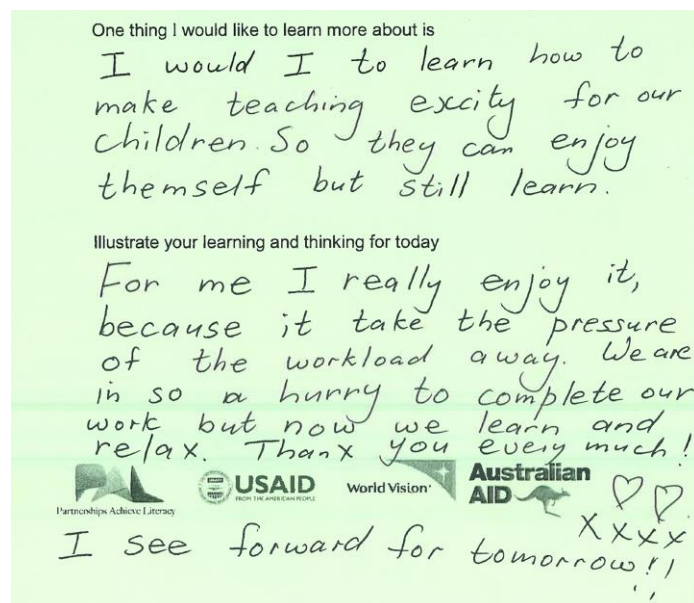 One thing I would like to learn more about is
I would I to learn how to
make teaching excity for our
children. So they can enjoy
themself but still learn.
Illustrate your learning and thinking for today
For me I really enjoy it,
because it take the pressure
of the workload away. We are
in so a hurry to complete our
work but now we learn and
relax. Thanx you every much!
PAL
Partnerships Achieve Literacy
USAID
FROM THE AMERICAN PEOPLE
World Vision
Australian
AID
xxxx
I see forward for tomorrow!!